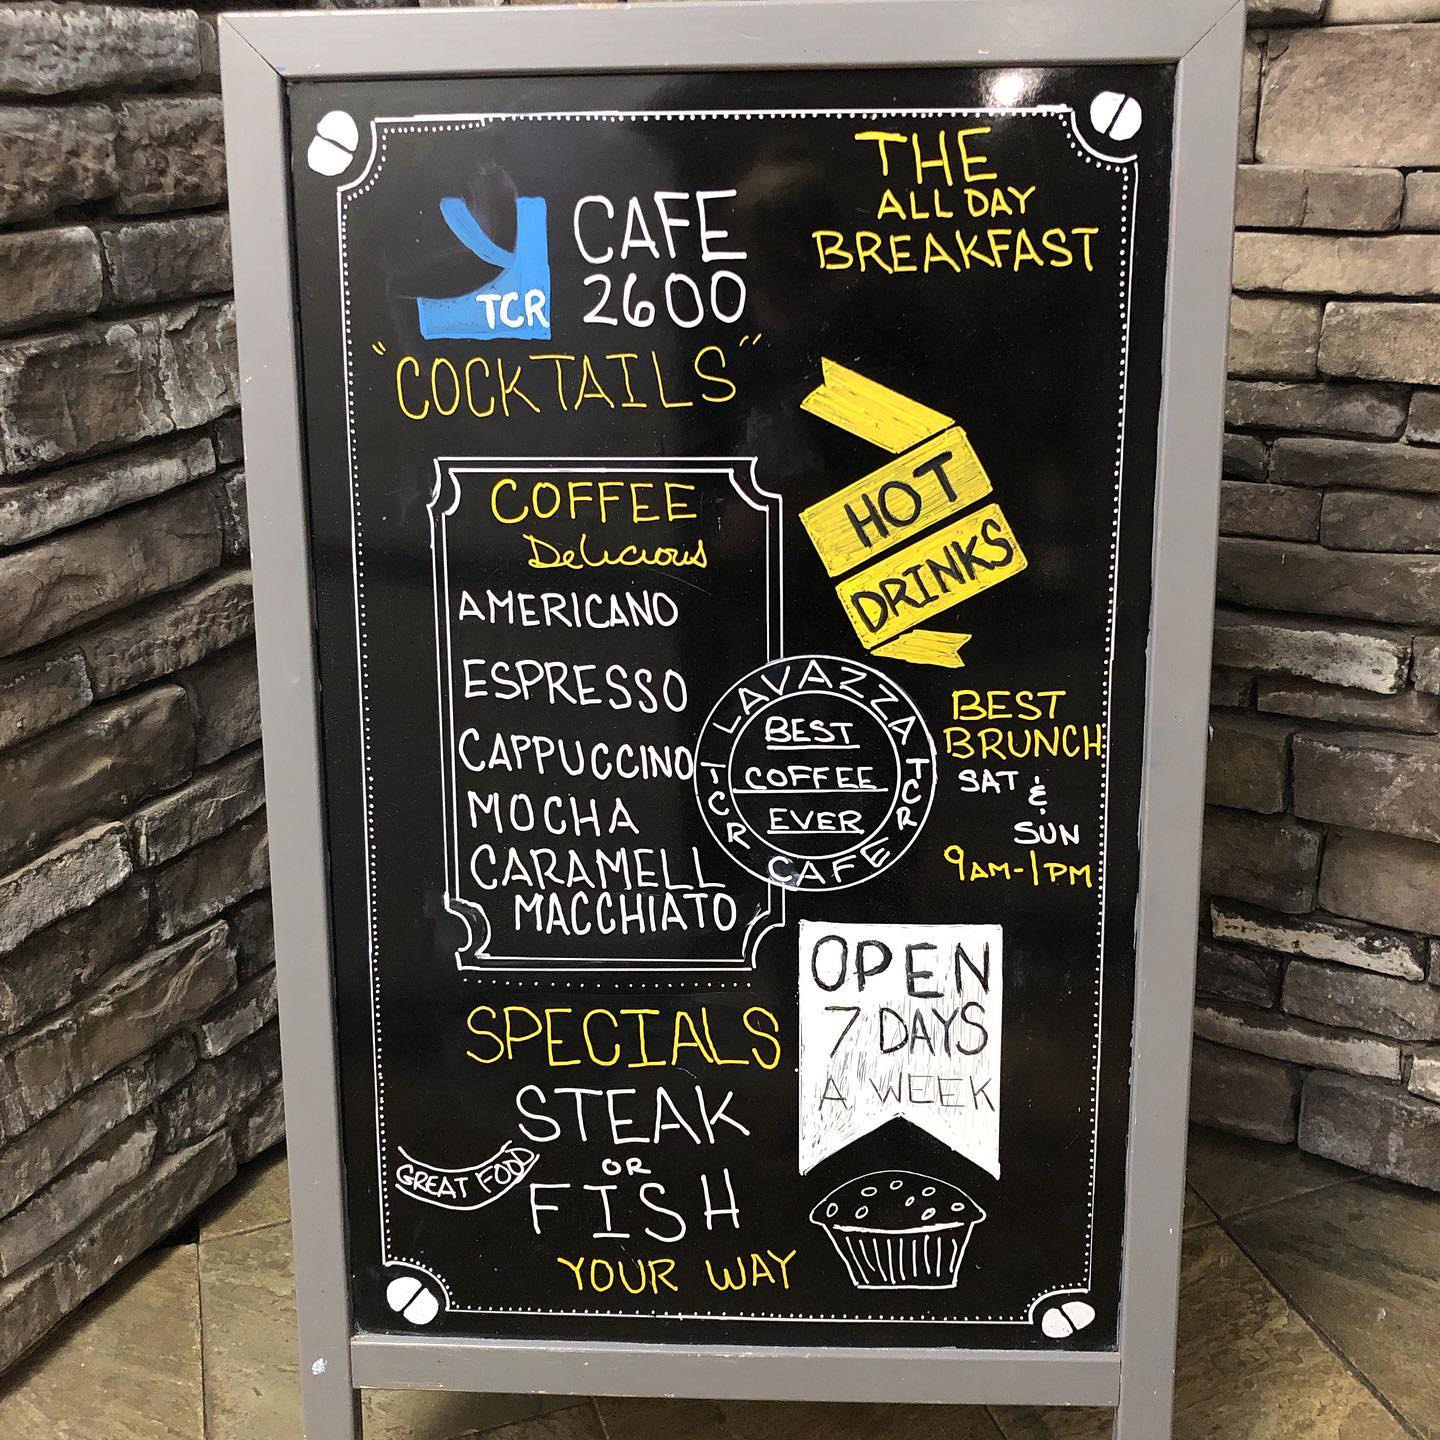 THE
ALL DAY
BREAKFAST
TCR
CAFE
2600
"COCKTAILS"
HOT
DRINKS
COFFEE
Delicious
AMERICANO
ESPRESSO
CAPPUCCINO
MOCHA
CARAMELL
MACCHIATO
LAVAZZA
TCR
CAFE
TCR
BEST
COFFEE
EVER
BEST
BRUNCH
SAT &
SUN
9AM-1PM
OPEN
7 DAYS
A WEEK
SPECIALS
STEAK
OR
FISH
YOUR WAY
GREAT FOOD